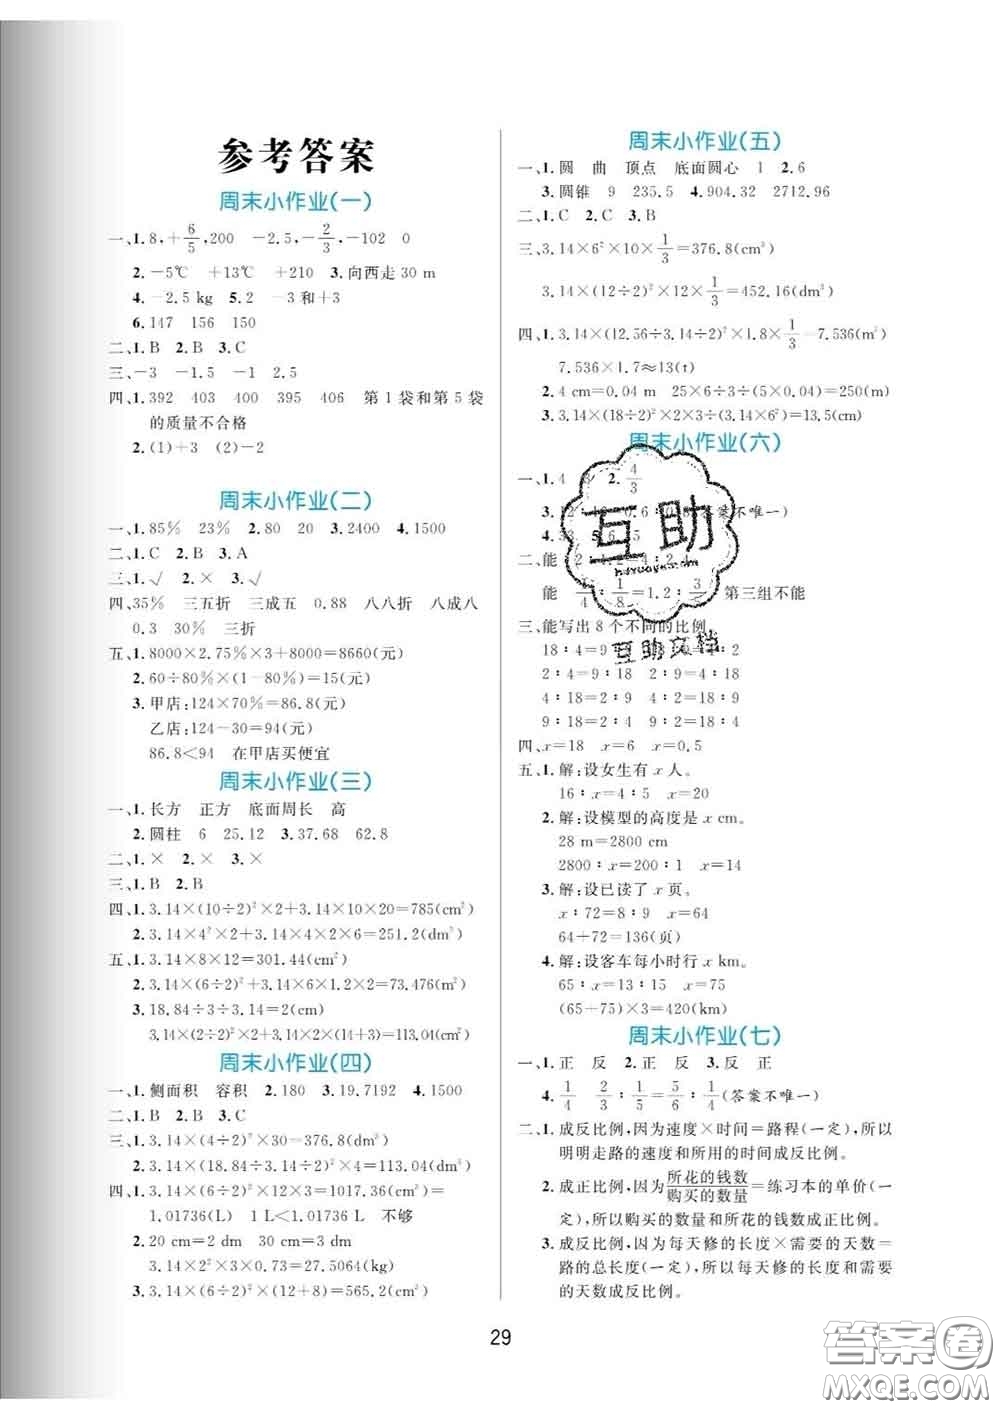 参考答案
周末小作业(一)
一、1. 8,+6/5,200 -2.5,-2/3,-102 0
2. -5℃ +13℃ +210 3. 向西走30 m
4. -2.5 kg 5. 2 -3和+3
6. 147 156 150
二、1. B 2. B 3. C
三、-3 -1.5 -1 2.5
四、1. 392 403 400 395 406 第1袋和第5袋
的质量不合格
2. (1)+3 (2)-2
周末小作业(二)
一、1. 85% 23% 2. 80 20 3. 2400 4. 1500
二、1. C 2. B 3. A
三、1. √ 2. × 3. √
四、35% 三五折 三成五 0.88 八八折 八成八
0.3 30% 三折
五、1. 8000×2.75%×3+8000=8660(元)
2. 60÷80%×(1-80%)=15(元)
3. 甲店:124×70%=86.8(元)
乙店:124-30=94(元)
86.8<94 在甲店买便宜
周末小作业(三)
一、1. 长方 正方 底面周长 高
2. 圆柱 6 25.12 3. 37.68 62.8
二、1. × 2. × 3. ×
三、1. B 2. B
四、1. 3.14×(10÷2)²×2+3.14×10×20=785(cm²)
2. 3.14×4²×2+3.14×4×2×6=251.2(dm²)
五、1. 3.14×8×12=301.44(cm²)
2. 3.14×(6÷2)²+3.14×6×1.2×2=73.476(m²)
3. 18.84÷3÷3.14=2(cm)
3.14×(2÷2)²×2+3.14×2×(14+3)=113.04(cm²)
周末小作业(四)
一、1. 侧面积 容积 2. 180 3. 19.7192 4. 1500
二、1. B 2. B 3. C
三、1. 3.14×(4÷2)²×30=376.8(cm³)
2. 3.14×(18.84÷3.14÷2)²×4=113.04(cm³)
四、1. 3.14×(6÷2)²×12×3=1017.36(cm³)=
1.01736(L) 1 L<1.01736 L 不够
2. 20 cm=2 dm 30 cm=3 dm
3.14×2²×3×0.73=27.5064(kg)
3. 3.14×(6÷2)²×(12+8)=565.2(cm³)
周末小作业(五)
一、1. 圆 曲 顶点 底面圆心 1 2. 6
3. 圆锥 9 235.5 4. 904.32 2712.96
二、1. C 2. C 3. B
三、3.14×6²×10×1/3=376.8(cm³)
3.14×(12÷2)²×12×1/3=452.16(dm³)
四、1. 3.14×(12.56÷3.14÷2)²×1.8×1/3=7.536(m³)
7.536×1.7≈13(t)
2. 4 cm=0.04 m 25×6÷3÷(5×0.04)=250(m)
3. 3.14×(18÷2)²×2×3÷(3.14×6²)=13.5(cm)
周末小作业(六)
一、1. 4 2. 4/3
3. 答案不唯一)
4. 5
二、能
能 1/8=1.2: 第三组不能
三、能写出8个不同的比例。
18:4=9:2
2:4=9:18 2:9=4:18
4:18=2:9 4:2=18:9
9:18=2:4 9:2=18:4
四、x=18 x=6 x=0.5
五、1. 解:设女生有x人。
16:x=4:5 x=20
2. 解:设模型的高度是x cm。
28 m=2800 cm
2800:x=200:1 x=14
3. 解:设已读了x页。
x:72=8:9 x=64
64+72=136(页)
4. 解:设客车每小时行x km。
65:x=13:15 x=75
(65+75)×3=420(km)
周末小作业(七)
一、1. 正 反 2. 正 反 3. 反 正
4. 1/4 2/3:1/5=5/6:1/4(答案不唯一)
二、1. 成反比例,因为速度×时间=路程(一定),所以
明明走路的速度和所用的时间成反比例。
2. 成正比例,因为所花的钱数/购买的数量=练习本的单价(一
定),所以购买的数量和所花的钱数成正比例。
3. 成反比例,因为每天修的长度×需要的天数=
路的总长度(一定),所以每天修的长度和需要
的天数成反比例。
互助
互助文档
29
答案圈
MXQE.COM